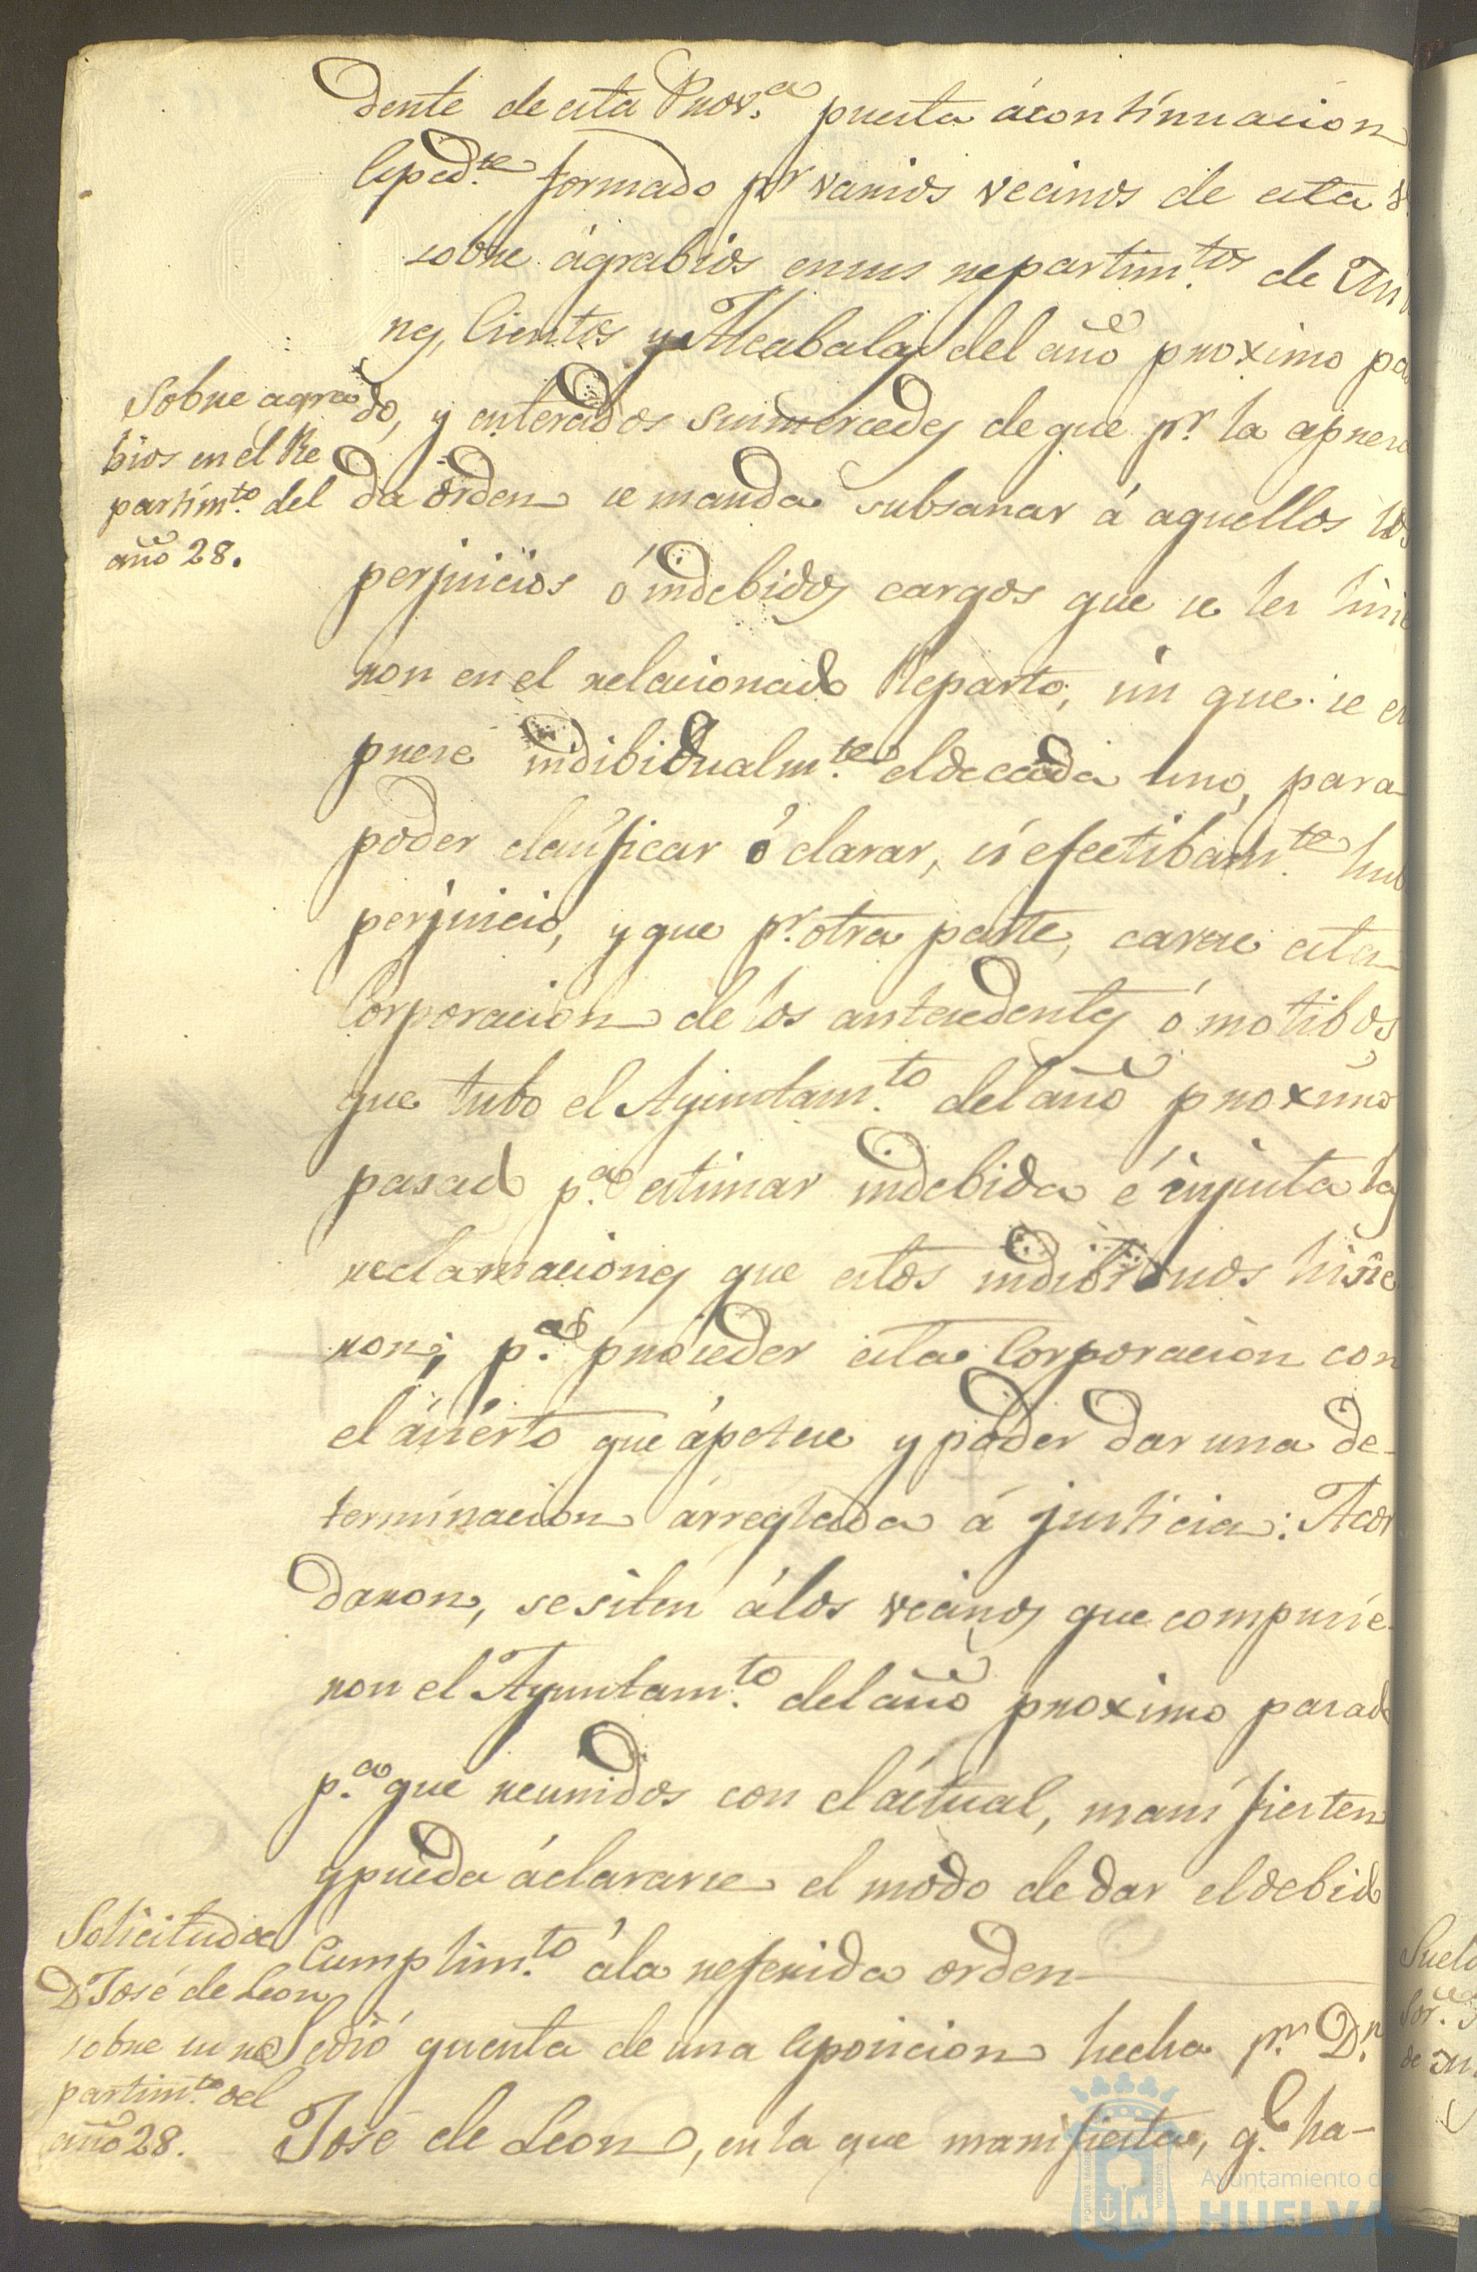 dente de esta Prov.ª puesta ácontinuacion
Esped.te formado pr varios vecinos de esta
sobre ágrabios ensus repartim.tos de
nes, Cientos y Alcabalas del año proximo pa
Sobre agra
bios en él Re
partim.to del
año 28.
do, y enterados susmercedes de que pr. la apresa
da orden se manda subsanar á aquellos los
perjuicios ó indebidos cargos que se les hicie
ron en el relacionado Reparto, sin que se es
prese indibidualm.te el de cada uno, para
poder clasificar ó clarar, si efectibam.te hub
perjuicio, y que pr. otra parte, carese esta
Corporacion de los antesedentes ó motibos
que tubo el Ayuntam.to del año proximo
pasado p.ª estimar indebida é injusta las
reclamaciones que estos indibiduos hisie
ron; p.ª proseder esta Corporacion con
el ásierto que ápetese y poder dar una de-
terminacion árreglada á justicia: Acor
daron, se siten álos vecinos que compusie-
ron el Ayuntam.to del año proximo pasado
p.ª que reunidos con el áctual, manifiesten
y pueda áclararse el modo de dar el debido
Cumplim.to ála referida orden
Solicitud de
D. José de Leon
sobre su re
partim.to del
año 28.
Se dió quenta de una esposicion hecha pr. D.n
José de Leon, en la que manifiesta, q.e ha-
Ayuntamiento de
HUELVA